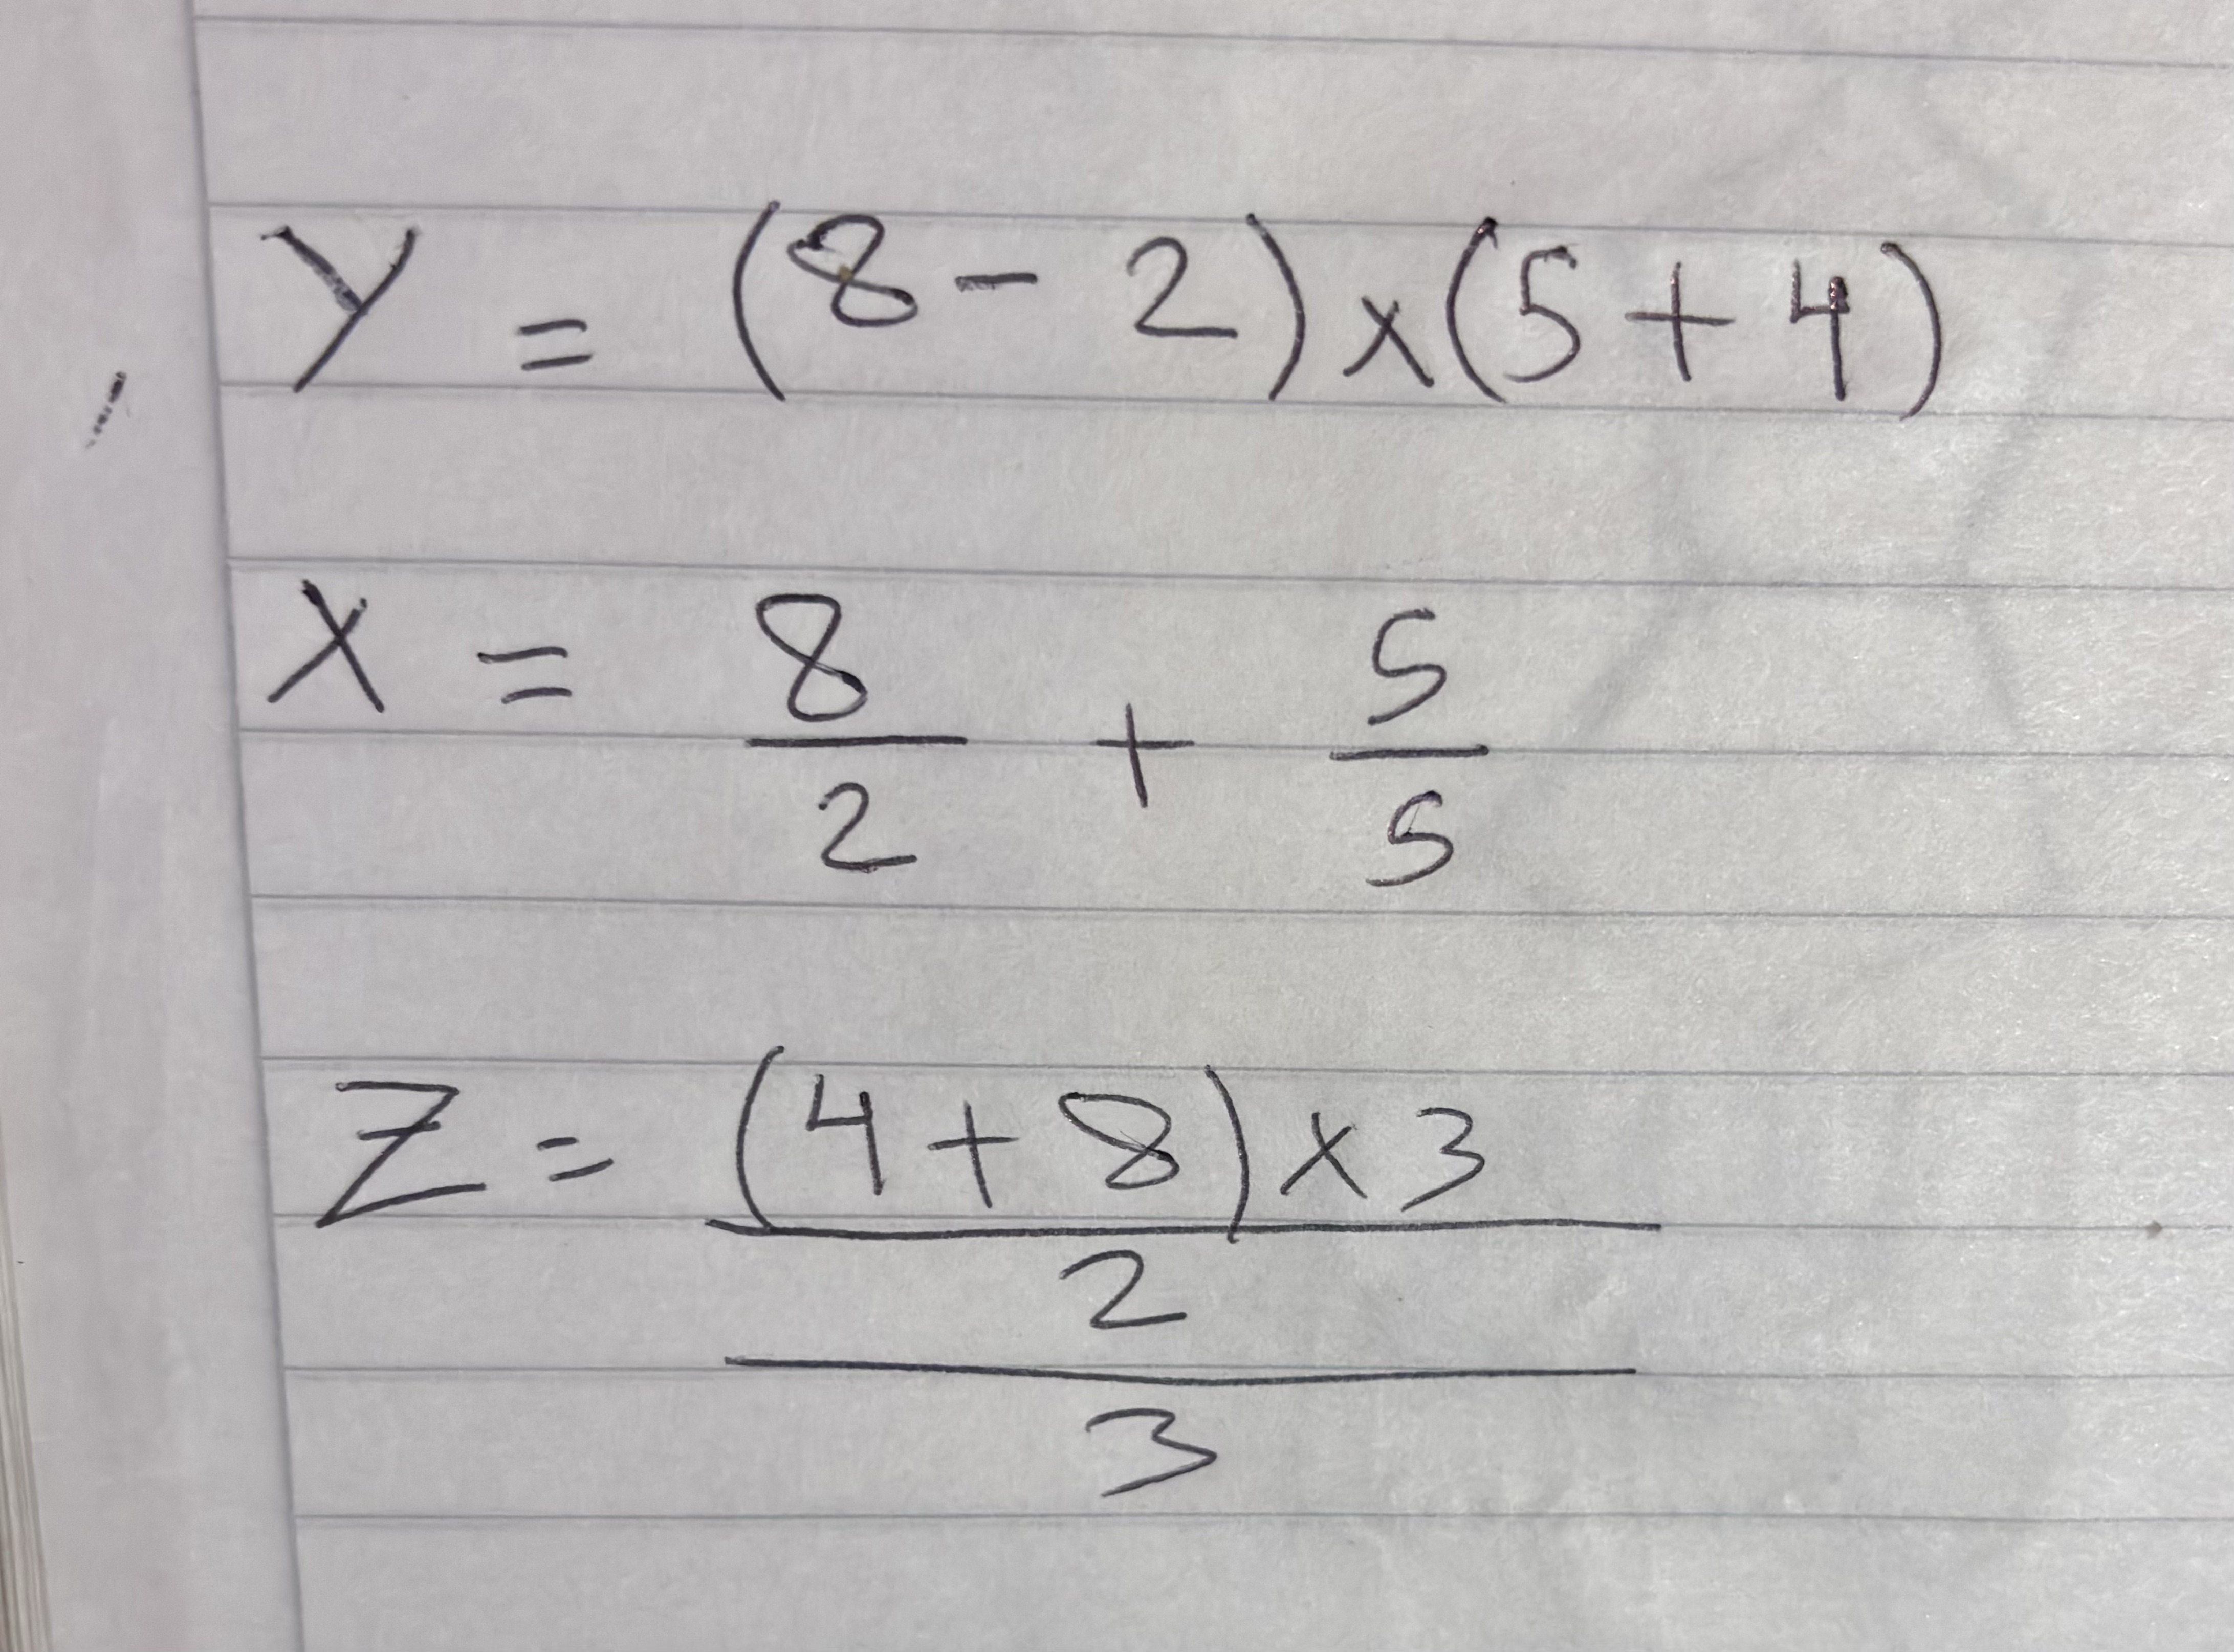 Y = (8 - 2) x (5 + 4)
X = 8/2 + 5/5
Z = (4 + 8) x 3
2
3